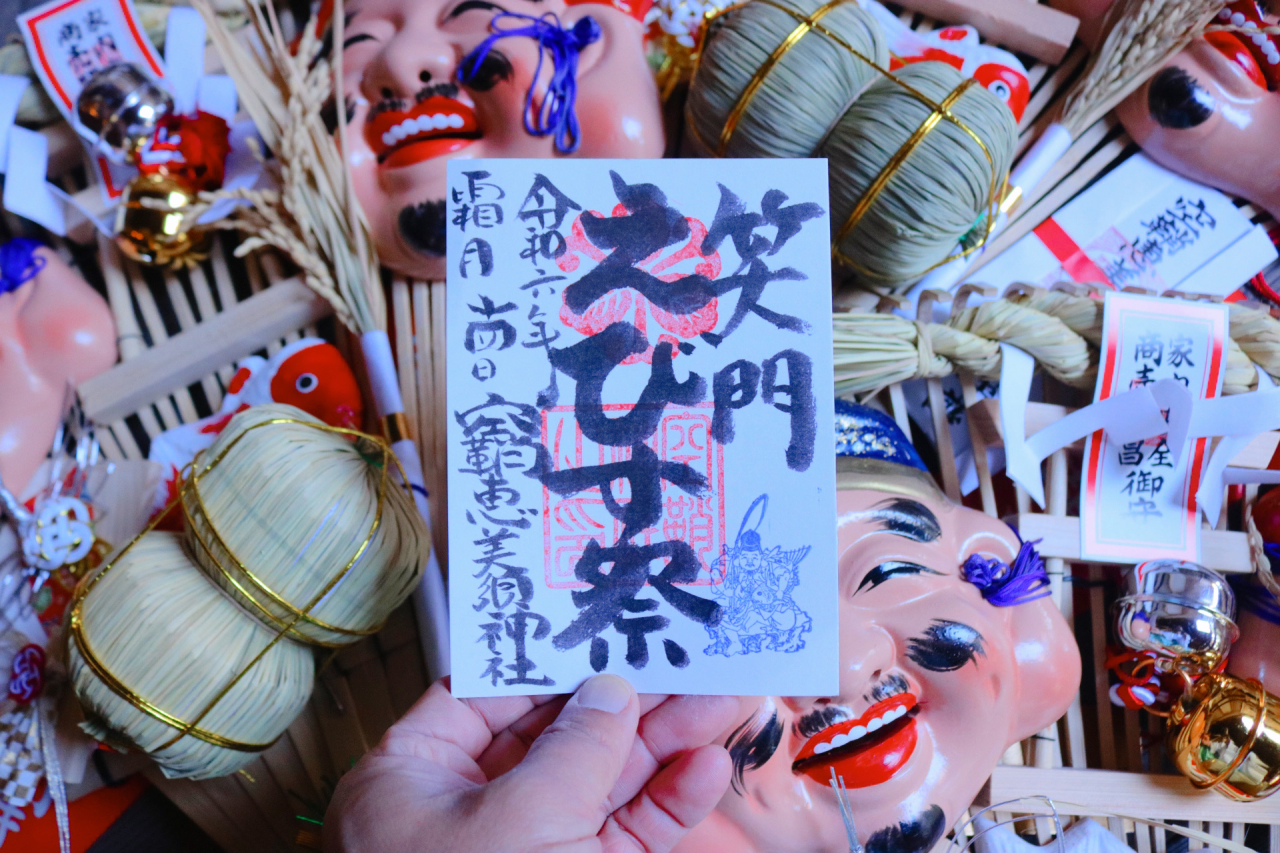 笑門
えびす祭
令和六年
霜月 日 空鞘恵美須神社
家内
商売
家
商売
全
昌御守
空鞘恵美